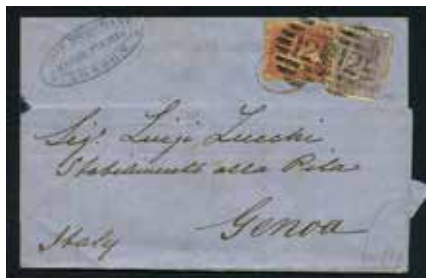 12 12
Sig. Luigi Zucchi
Stabilimento alla Pila
Genoa
Italy